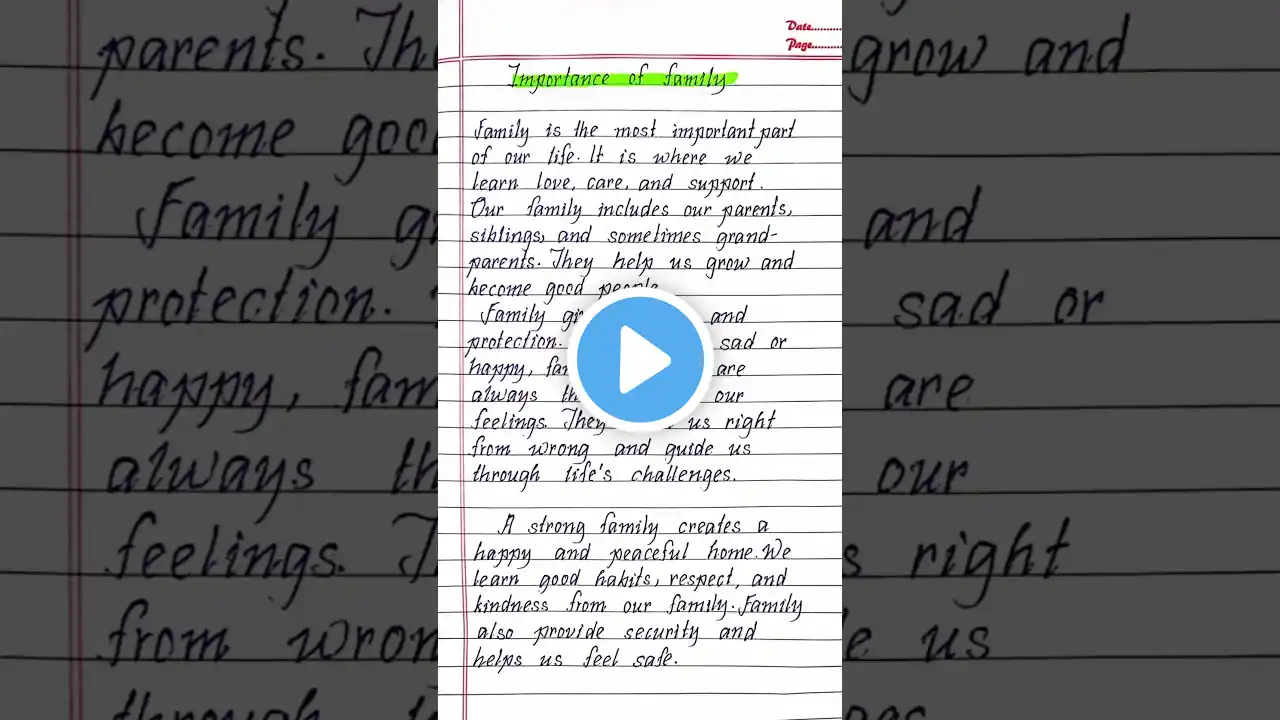 Date..........
Page..........
Importance of family
Family is the most important part
of our life. It is where we
learn love, care, and support.
Our family includes our parents,
siblings, and sometimes grand-
parents. They help us grow and
become good people
Family and
protection. sad or
happy, are
always our
feelings. They us right
from wrong and guide us
through life's challenges.
A strong family creates a
happy and peaceful home. We
learn good habits, respect, and
kindness from our family. Family
also provide security and
helps us feel safe.